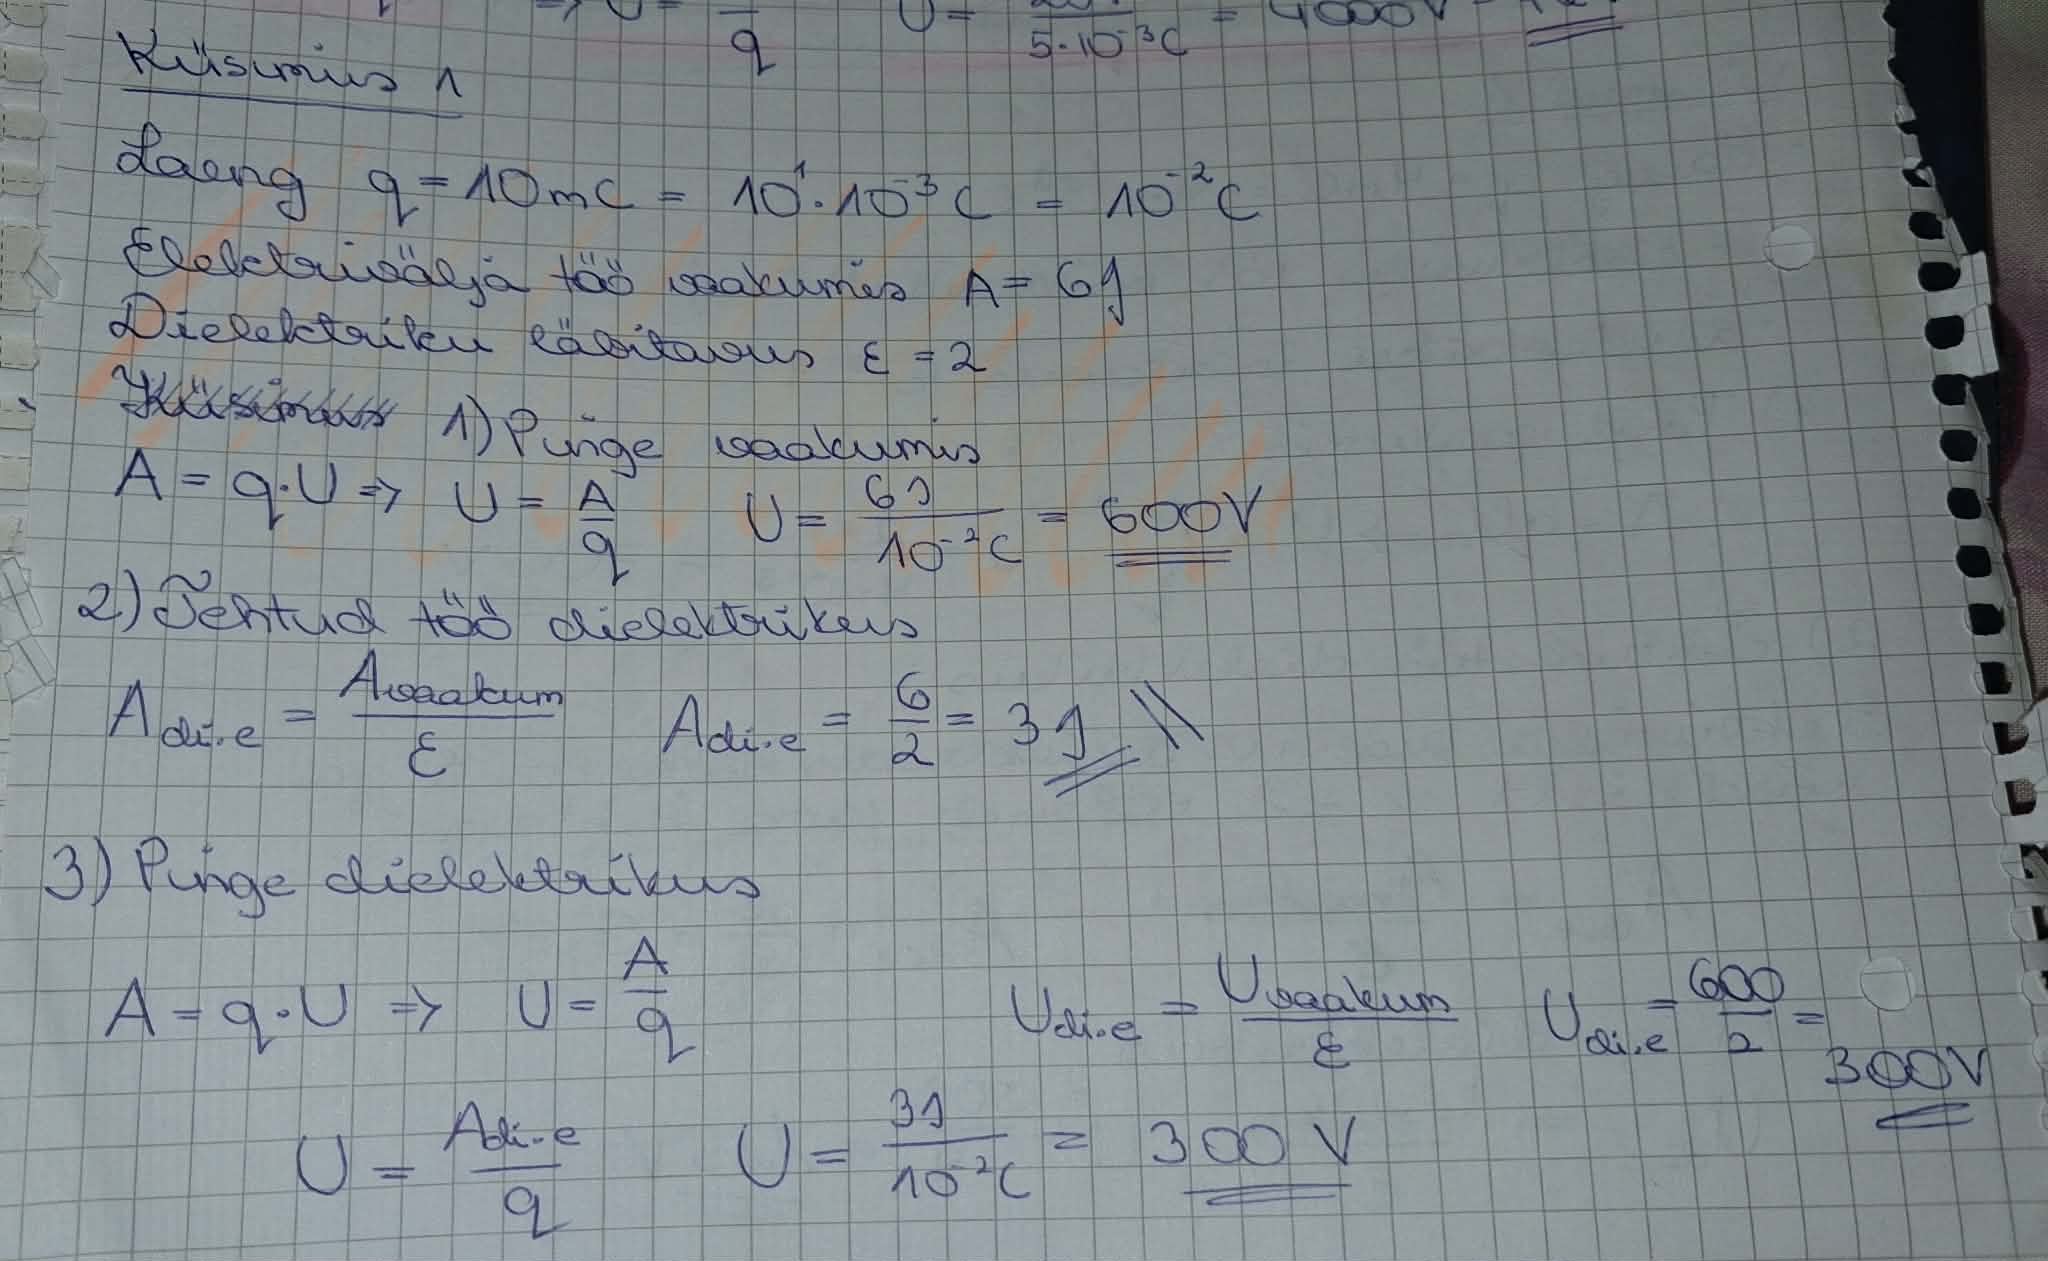 => U = — q U = — 5·10⁻³C = 4000V
Küsimus 1
Laeng q = 10mC = 10¹·10⁻³C = 10⁻²C
Elektrivälja töö vaakumis A = 6J
Dielektriku läbitavus ε = 2
Küsimus 1) Pinge vaakumis
A = q·U => U = A/q U = 6J/10⁻²C = 600V
2) Tehtud töö dielektrikus
A di.e = A vaakum/ε A di.e = 6/2 = 3J
3) Pinge dielektrikus
A = q·U => U = A/q U di.e = U vaakum/ε U di.e = 600/2 =
300V
U = A di.e/q U = 3J/10⁻²C = 300 V